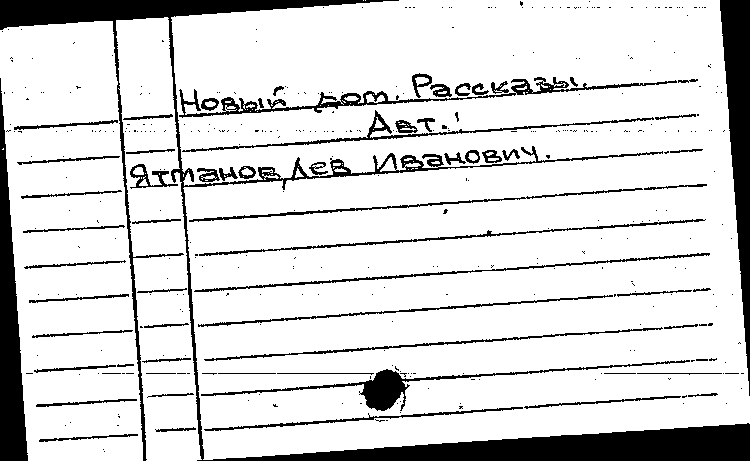 Новый дом. Рассказы.
Авт.:
Ятманов, Лев Иванович.